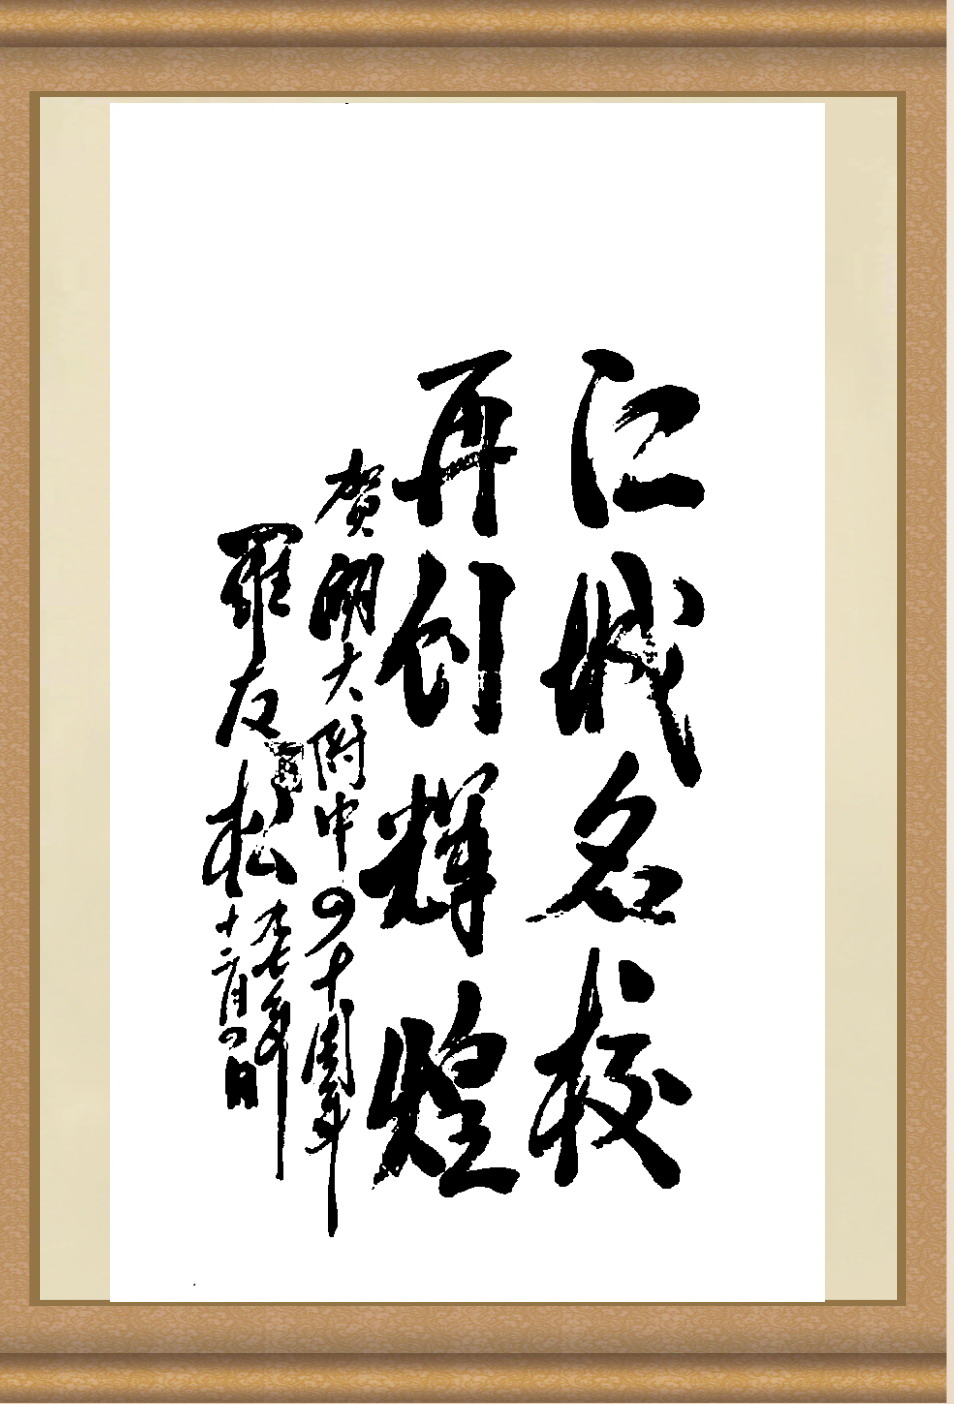 江城名校
再创輝煌
贺湖大附中四十周年
羅友松
九七年
十二月四日